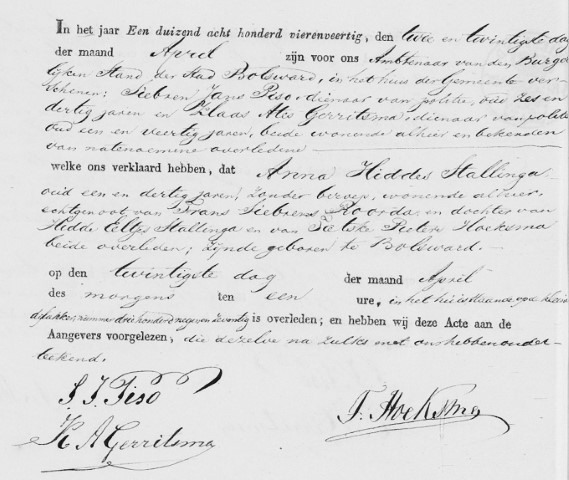 In het jaar Een duizend acht honderd vierenveertig, den twee en twintigste dag
der maand April zijn voor ons Ambtenaar van den Burger
lijken Stand der Stad Bolsward, in het huis der Gemeente ver-
schenen: Siebren Jans Piso dienaar van politie, oud zes en
dertig jaren en Klaas Ates Gerritsma dienaar van politie
oud een en veertig jaren, beide wonende alhier en bekenden
van na te noemene overledene
welke ons verklaard hebben, dat Anna Hiddes Stallinga
oud een en dertig jaren, zonder beroep, wonende alhier
echtgenoot van Frans Siebrens Roorda en dochter van
Hidde Eeltjes Stallinga en van Sietske Pieters Hoeksma
beide overleden; zijnde geboren te Bolsward.
op den twintigste dag der maand April
des morgens ten een ure, in het huis staande
nummer drie honderd negen en zeventig is overleden; en hebben wij deze Acte aan de
Aangevers voorgelezen, die dezelve na zulks met ons hebben onder-
tekend.
S J. Piso
K A Gerritsma
T. Hoeksma